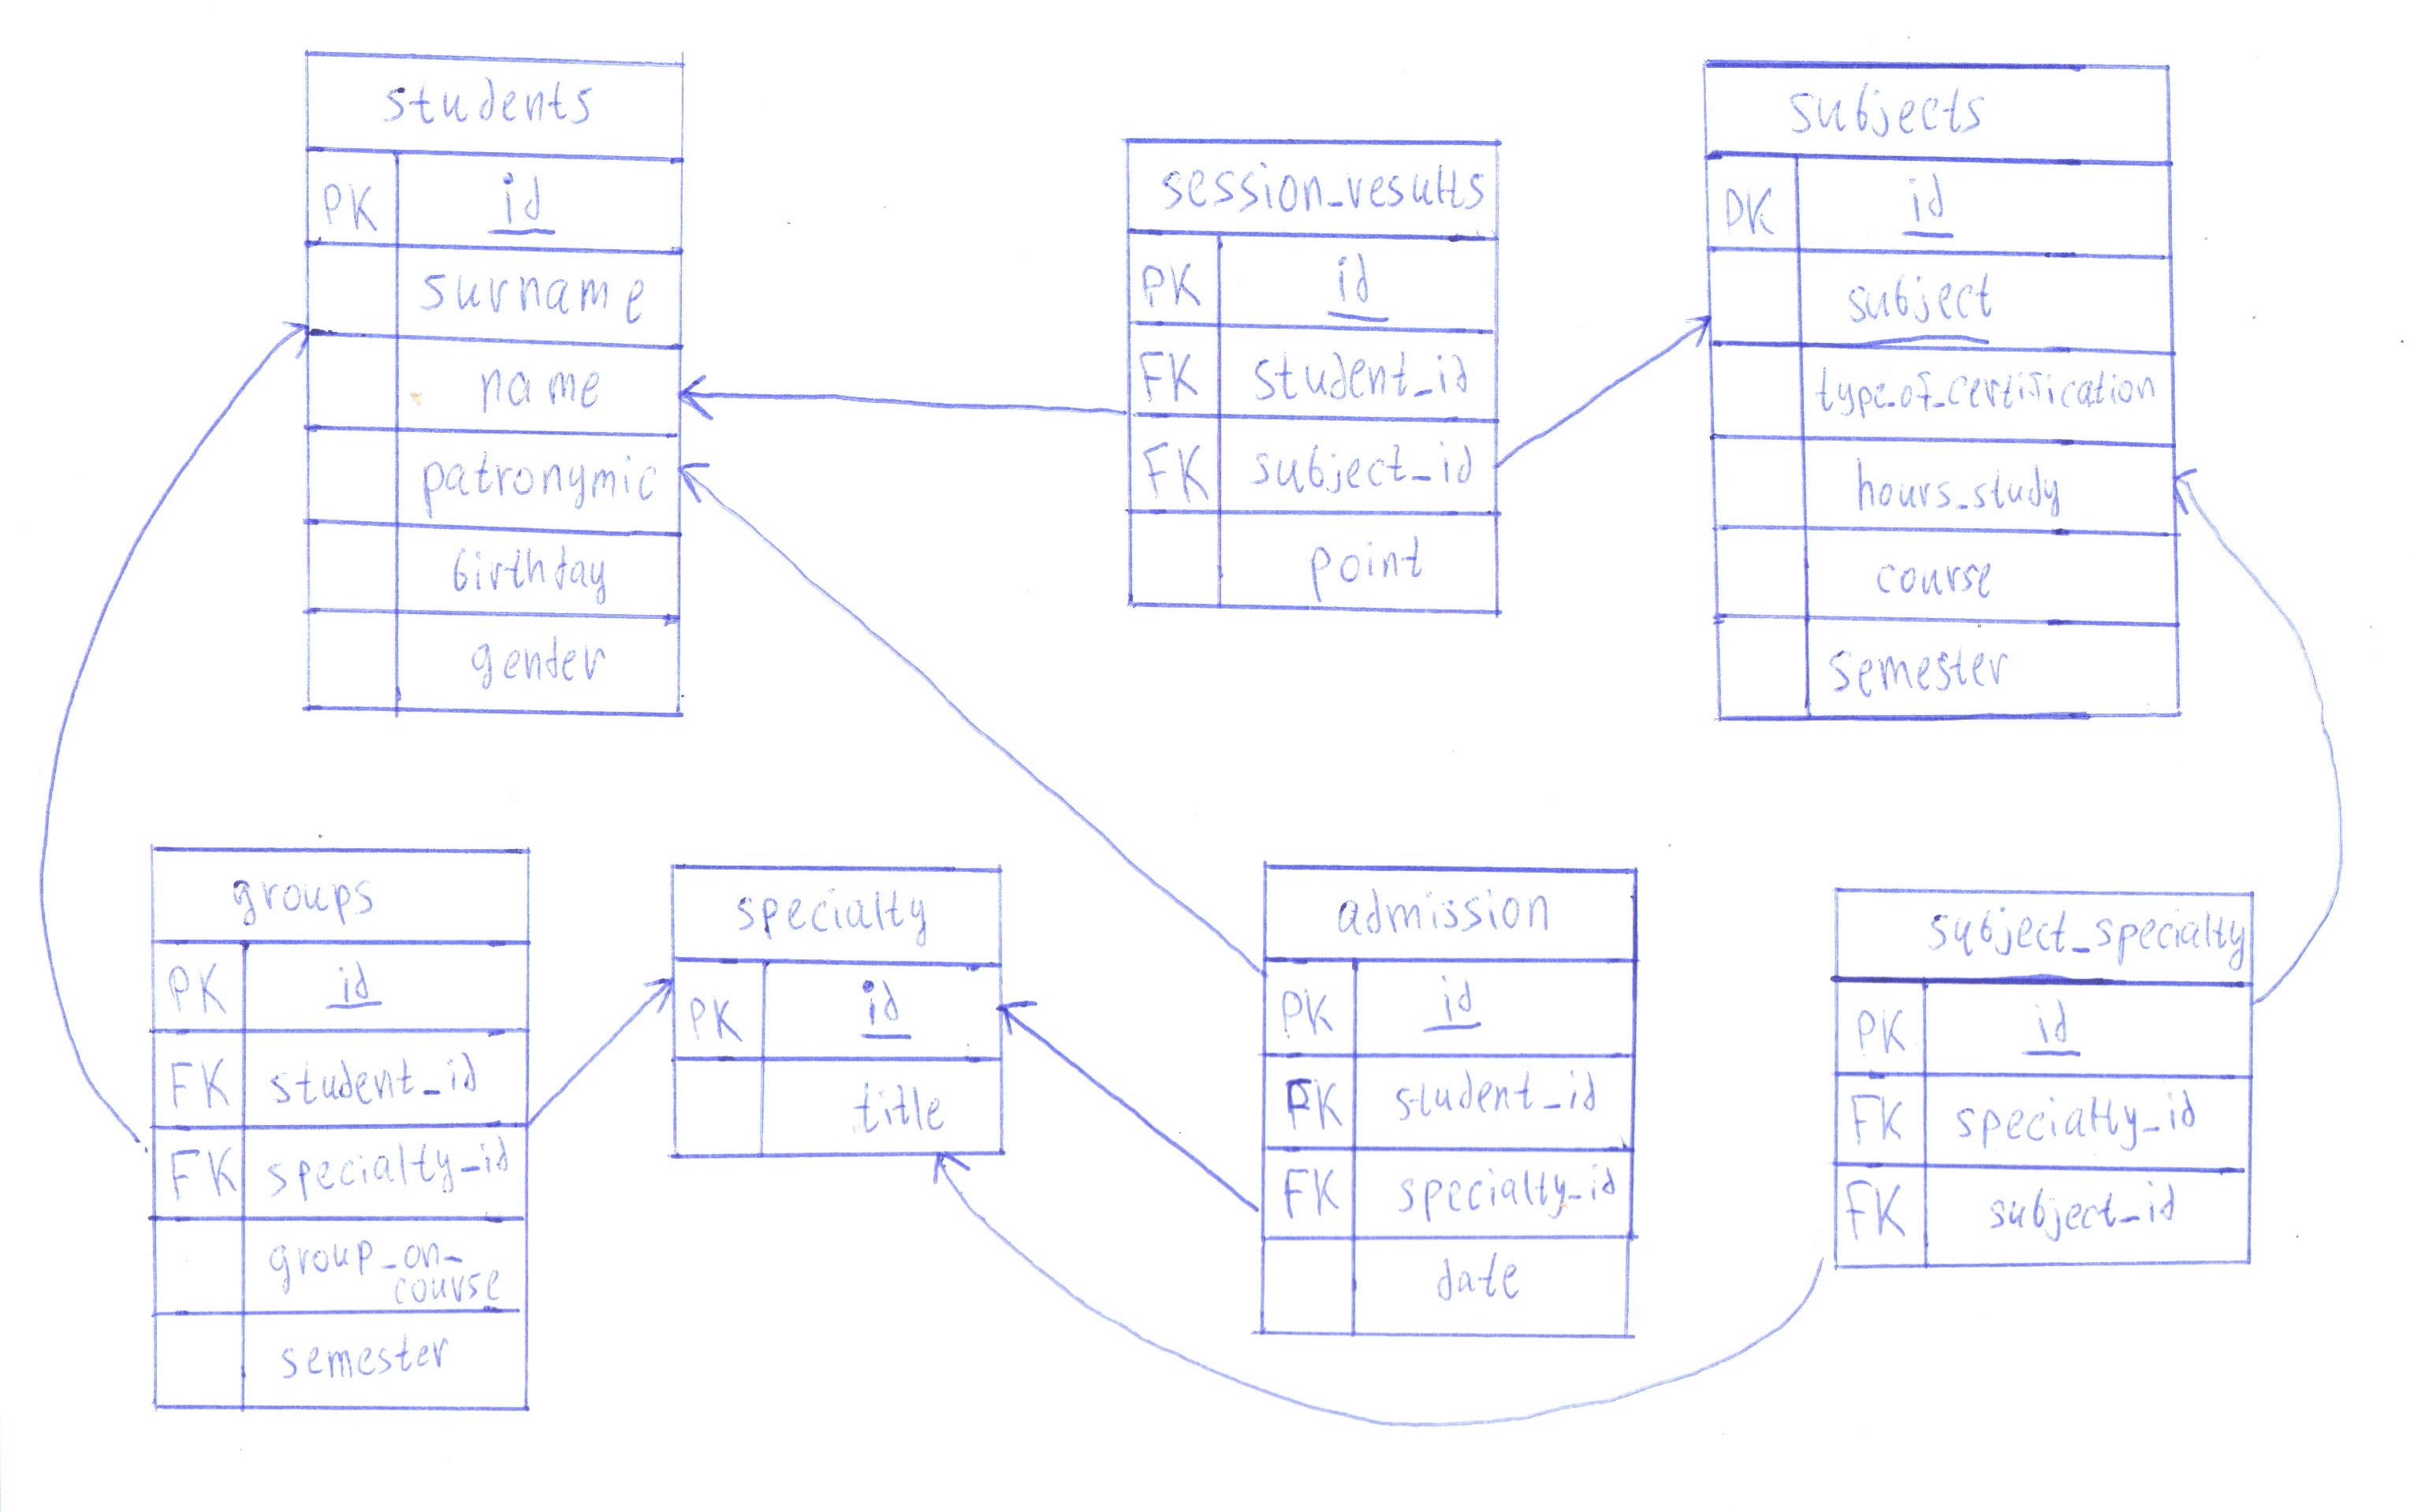 students
PK id
surname
name
patronymic
birthday
gender
session_results
PK id
FK student_id
FK subject_id
point
subjects
PK id
subject
type_of_certification
hours_study
course
semester
groups
PK id
FK student_id
FK specialty_id
group_on_
course
semester
specialty
PK id
title
admission
PK id
FK student_id
FK specialty_id
date
subject_specialty
PK id
FK specialty_id
FK subject_id